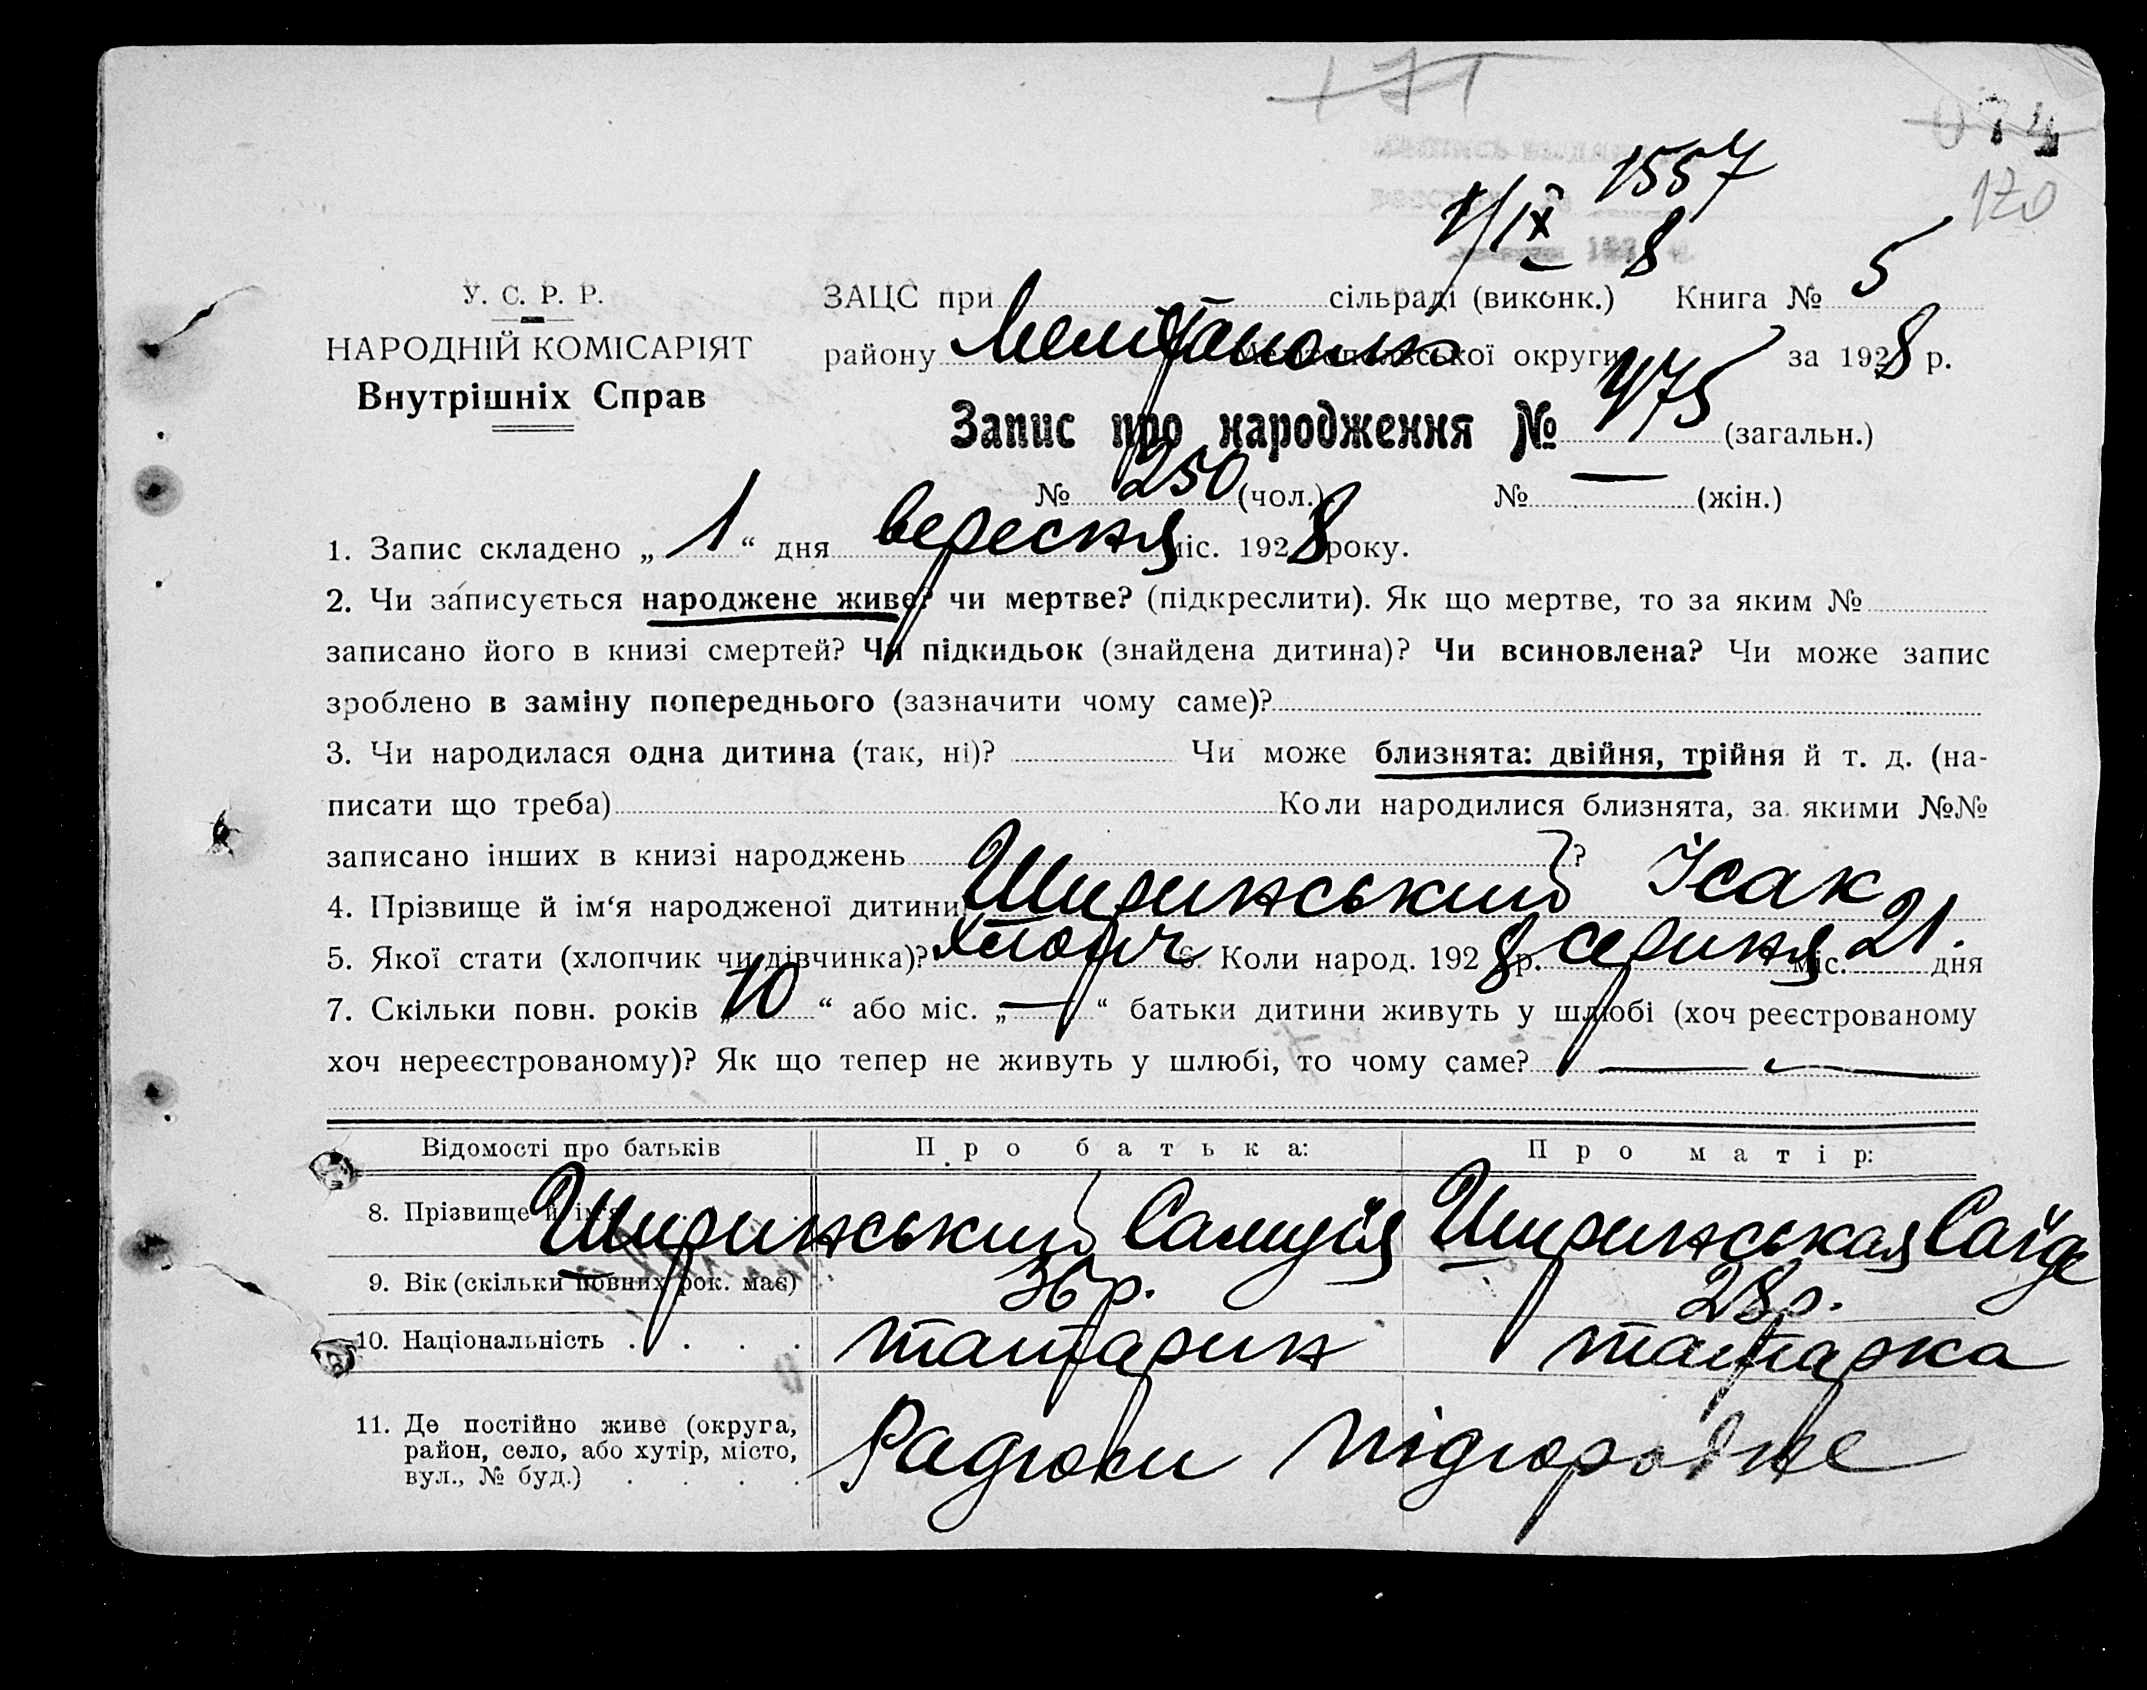 171
074
170
1557
1/IX 8
У. С. Р. Р.
НАРОДНІЙ КОМІСАРІЯТ
Внутрішніх Справ
ЗАЦС при сільраді (виконк.) Книга № 5
району Мелітополь Мелітопольської округи за 1928 р.
Запис про народження № 475 (загальн.)
№ 250 (чол.) № — (жін.)
1. Запис складено „ 1 “ дня вересня міс. 1928 року.
2. Чи записується народжене живе? чи мертве? (підкреслити). Як що мертве, то за яким №
записано його в книзі смертей? Чи підкидьок (знайдена дитина)? Чи всиновлена? Чи може запис
зроблено в заміну попереднього (зазначити чому саме)?
3. Чи народилася одна дитина (так, ні)? Чи може близнята: двійня, трійня й т. д. (на-
писати що треба) Коли народилися близнята, за якими №№
записано інших в книзі народжень ?
4. Прізвище й ім‘я народженої дитини Ширинський Ісак
5. Якої стати (хлопчик чи дівчинка)? хлопч 6. Коли народ. 1928 р. серпня міс. 21. дня
7. Скільки повн. років „ 10 “ або міс. „ — “ батьки дитини живуть у шлюбі (хоч реєстрованому
хоч нереєстрованому)? Як що тепер не живуть у шлюбі, то чому саме? — —
Відомості про батьків Про батька: Про матір:
8. Прізвище й ім‘я Ширинський Ширинськая Саїде
9. Вік (скільки повних рок. має) 36 р. 28 р.
10. Національність . . . . татарин татарка
11. Де постійно живе (округа,
район, село, або хутір, місто,
вул., № буд.) . . . .